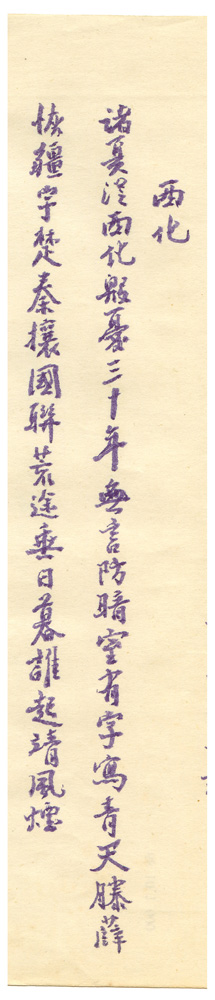 西化
諸夏西化殷憂三十年無言防暗室有字寫青天滕薛
恢疆宇楚秦攘國聯荒途垂日暮誰起靖風煙